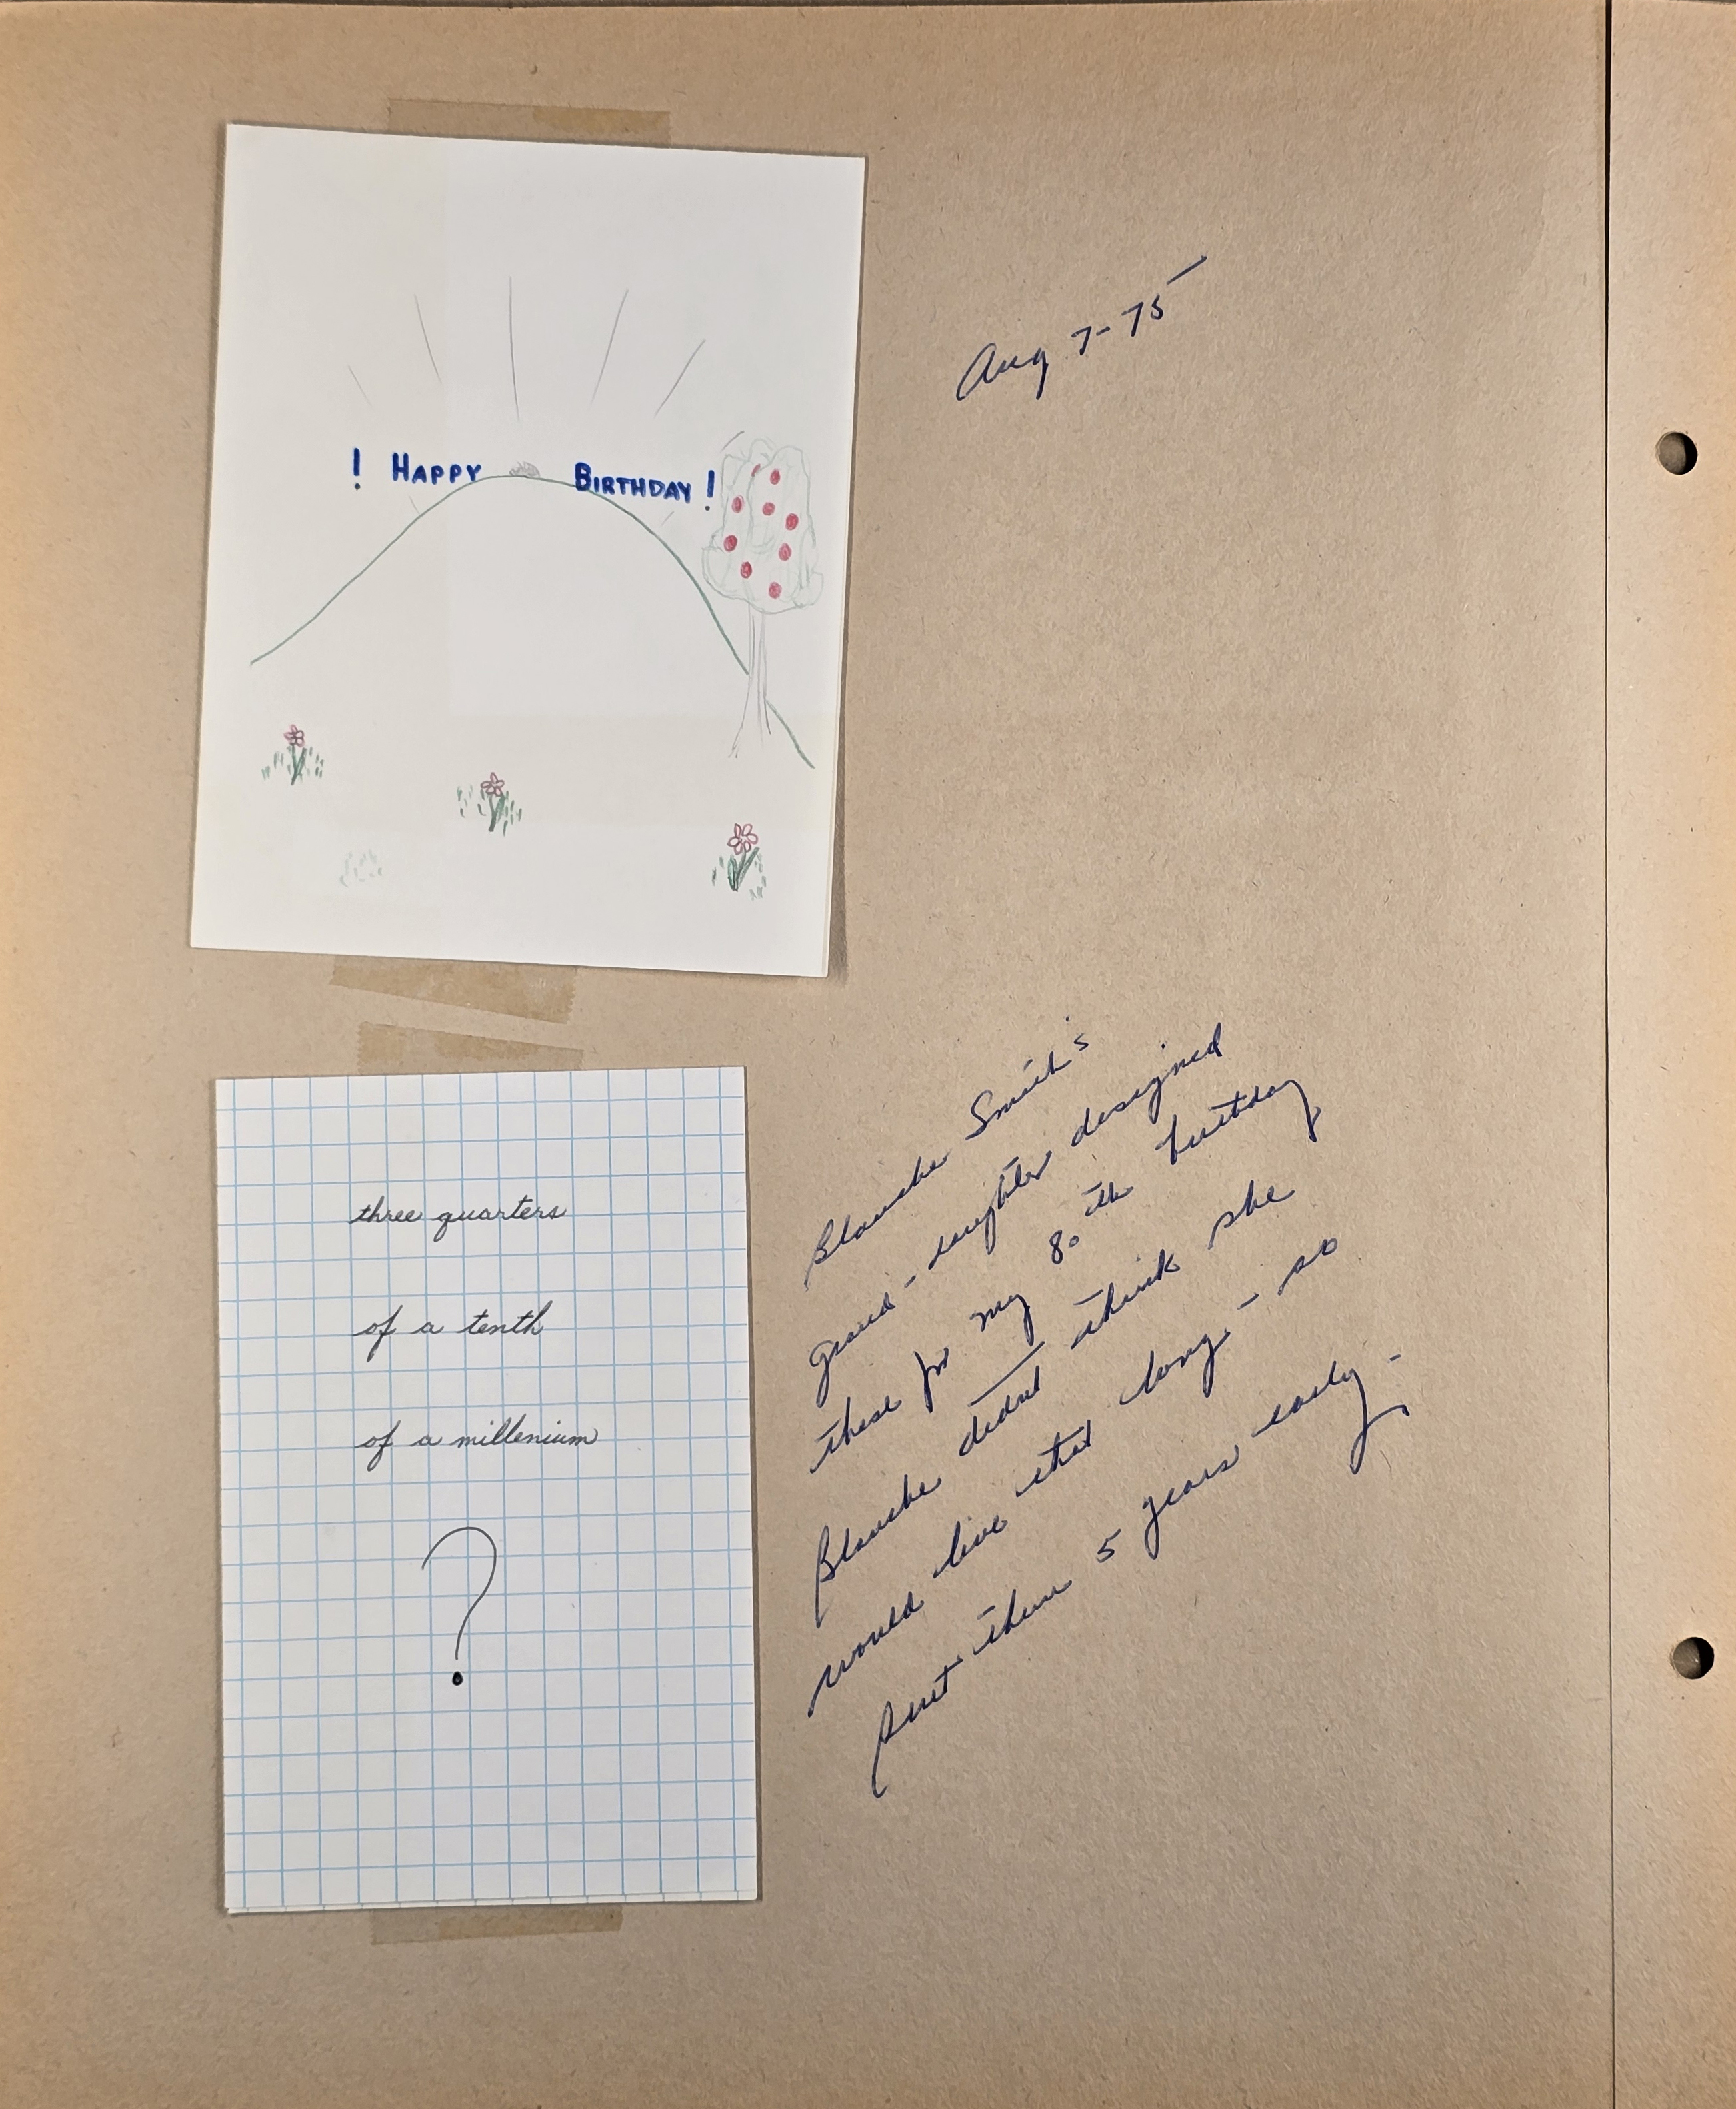 ! HAPPY BIRTHDAY !
Aug 7-75
three quarters
of a tenth
of a millenium
?
Blanche Smith's
grand-daughter designed
these for my 80th birthday
Blanche didnt think she
would live that long - so
sent them 5 years early -